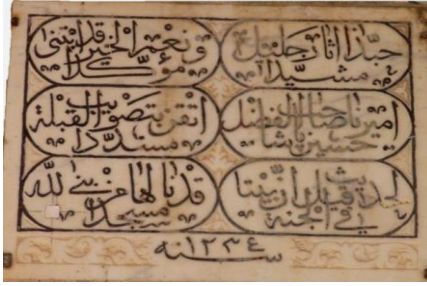 حبذا آثار جليلة مشيدا
ونعم الخير قد ابتنى مؤكدا
اميرنا صاحب الفضل حسين باشا
اتقن بتصويب القبلة مسددا
لحديث قيل ان بيتا في الجنة
قد نالها من بنى لله مسجدا
سنه ١٢٣٤